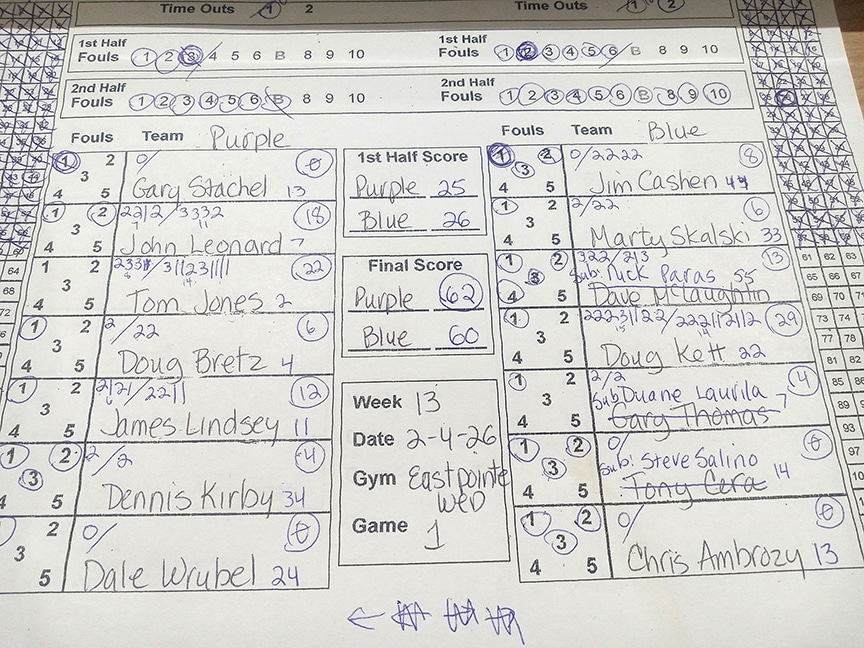 Time Outs 1 2
Time Outs 1 2
1st Half
Fouls 1 2 3 4 5 6 B 8 9 10
1st Half
Fouls 1 2 3 4 5 6 B 8 9 10
2nd Half
Fouls 1 2 3 4 5 6 B 8 9 10
2nd Half
Fouls 1 2 3 4 5 6 B 8 9 10
Fouls Team Purple
1 2 3 4 5
0/ 0
Gary Stachel 13
1 2 3 4 5
2212/3332 18
7 11
John Leonard 7
1 2 3 4 5
/311231111 22
14
Tom Jones 2
1 2 3 4 5
2/22 6
Doug Bretz 4
1 2 3 4 5
2121/2211 12
6
James Lindsey 11
1 2 3 4 5
2/2 4
Dennis Kirby 34
2 3 5
0/ 0
Dale Wrubel 24
1st Half Score
Purple 25
Blue 26
Final Score
Purple 62
Blue 60
Week 13
Date 2-4-26
Gym Eastpointe
WED
Game 1
Fouls Team Blue
1 2 3 4 5
0/2222 8
Jim Cashen 44
1 2 3 4 5
2/22 6
Marty Skalski 33
1 2 3 4 5
322/213 13
Sub: Nick Paras 55
Dave McLaughlin
1 2 3 4 5
22231122/222112112 29
15
Doug Kett 22
1 2 3 4 5
2/2 4
Sub: Duane Laurila 7
Gary Thomas
1 2 3 4 5
0/ 0
Sub: Steve Salino
Tony Cera 14
1 2 3 4 5
0/ 0
Chris Ambrozy 13
64
68
72
61 62 63
65 66 67
69 70 71
73 74
77 78
81 82
85
89
93
97